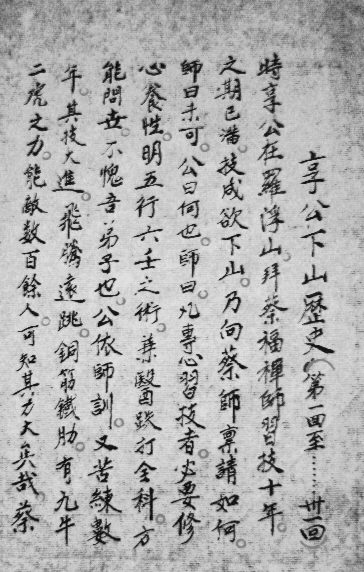 亨公下山歷史(第一回至……卅一回
時亨公在羅浮山拜蔡福禪師習技十年
之期已滿。技成欲下山。乃向蔡師稟請如何。
師曰未可。公曰何也。師曰凡專心習技者必要修
心養性明五行六壬之術。兼醫跌打全科方
能問世。不愧吾弟子也。公依師訓。又苦練數
年。其技大進。飛騰遠跳。銅筋鐵肋。有九牛
二虎之力。能敵数百餘人。可知其力大矣哉。蔡